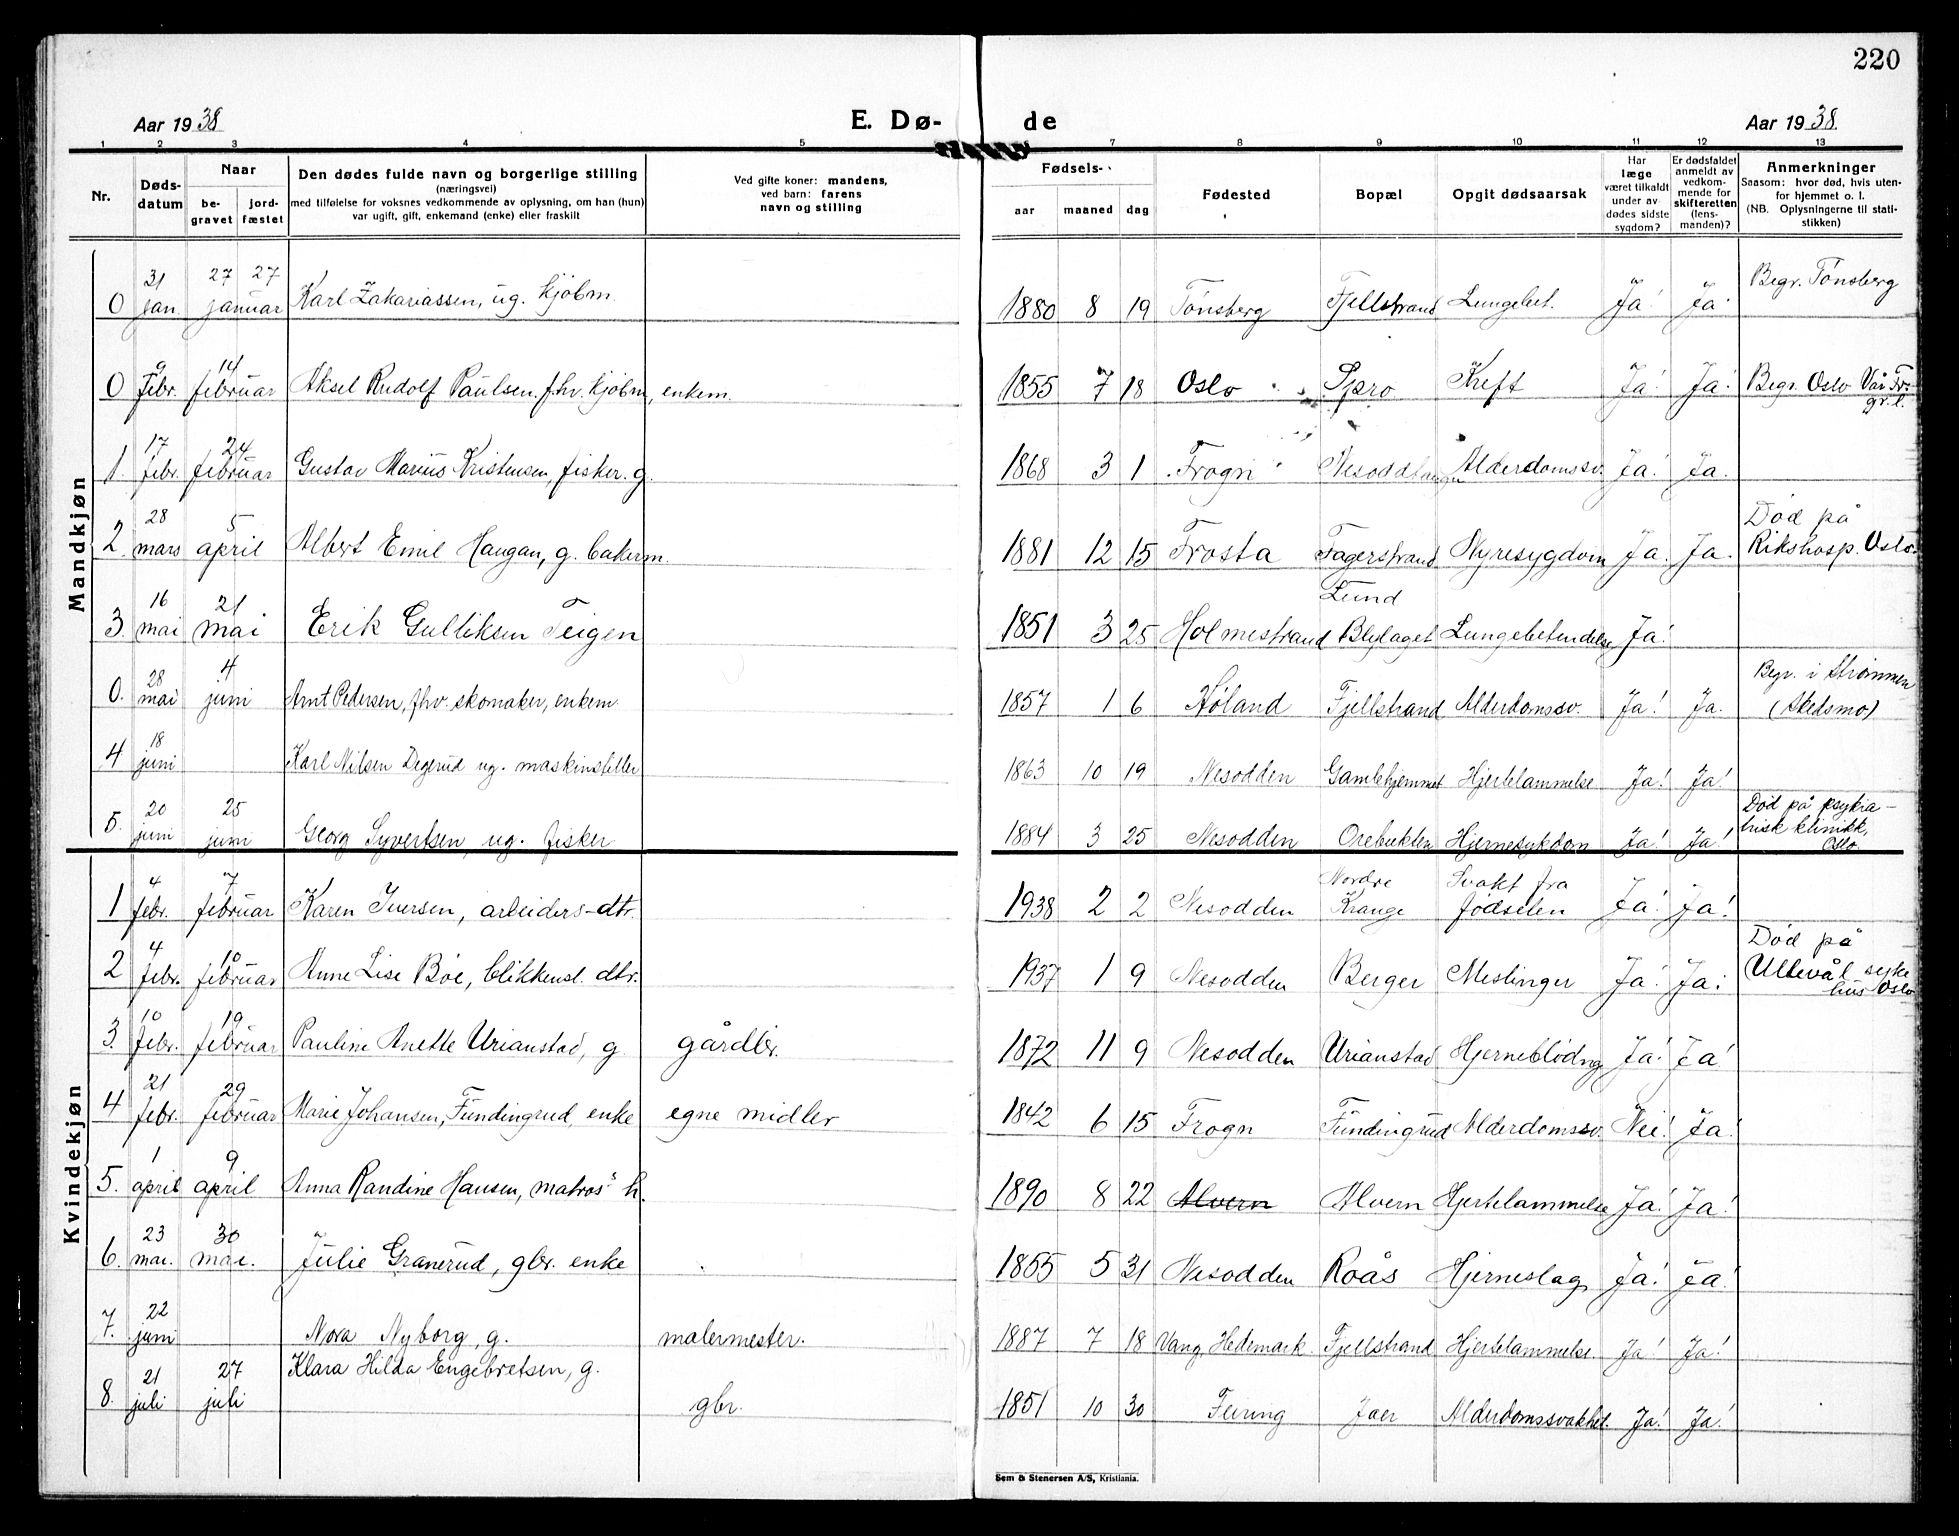 220
Aar 1938 E. Dø- de Aar 1938.
1 2 3 4 5 7 8 9 10 11 12 13
Nr. Døds-datum Naar be-gravet jord-fæstet Den dødes fulde navn og borgerlige stilling (næringsvei) med tilføielse for voksnes vedkommende av oplysning, om han (hun) var ugift, gift, enkemand (enke) eller fraskilt Ved gifte koner: mandens, ved barn: farens navn og stilling Fødsels- aar maaned dag Fødested Bopæl Opgit dødsaarsak Har læge været tilkaldt under av-dødes sidste sygdom? Er dødsfaldet anmeldt av vedkom-mende for skifteretten (lens-manden)? Anmerkninger Saasom: hvor død, hvis uten-for hjemmet o. l. (NB. Oplysningerne til stati-stikken)
Mandkjøn
0 31 jan. 27 27 januar Karl Zakariassen, ug. kjöbm. 1880 8 19 Tönsberg Fjellstrand Lungebet. Ja! Ja. Begr. Tönsberg
0 9 Febr. 14 februar Aksel Rudolf Paulsen. fhv. kjöbm, enkem. 1855 7 18 Oslo Spro Kreft Ja! Ja! Begr. Oslo Vår Fr. gr.l.
1. 17 febr. 24 februar Gustav Marius Kristensen, fisker. g. 1868 3 1 Frogn Nesoddtangen Alderdomssv. Ja! Ja.
2. 28 mars 5 april Albert Emil Haugan, g. bakerm. 1881 12 15 Frosta Fagerstrand Nyresygdom Ja. Ja. Död på Rikshosp. Oslo.
3. 16 mai 21 mai Erik Gulliksen Teigen 1851 3 25 Holmestrand Lund Blylaget Lungebetendelse Ja!
0. 28 mai 4 juni Arnt Pedersen, fhv. skomaker, enkem. 1857 1 6 Høland Fjellstrand Alderdomssv. Ja! Ja. Begr. i Strömmen (Skedsmo)
4 18 juni Karl Nilsen Degerud ug. maskinstiller 1863 10 19 Nesodden Gamlehjemmet Hjertelammelse Ja! Ja!
5. 20 juni 25 juni Georg Syvertsen, ug. fisker 1884 3 25 Nesodden Orebukten Hjernesykdom Ja! Ja! Död på psykia-trisk klinikk, Oslo.
Kvindekjøn
1 4 febr. 7 februar Karen Iversen, arbeiders-dtr. 1938 2 2 Nesodden Nordre Krange Svakt fra födselen Ja! Ja!
2 4 febr. 10 februar Anne Lise Böe, blikkensl. dtr. 1937 1 9 Nesodden Berger Meslinger Ja! Ja! Död på Ullevål syke hus Oslo
3. 10 febr. 19 februar Pauline Anette Urianstad, g. gårdbr. 1872 11 9 Nesodden Urianstad Hjerneblödng Ja! Ja!
4 21 febr. 29 februar Marie Johansen, Fundingrud, enke egne midler 1842 6 15 Frogn Fundingrud Alderdomssv. Nei! Ja!
5. 1 april 9 april Anna Randine Hansen, matros' h. 1890 8 22 Alvern Alvern Hjertelammelse Ja! Ja!
6. 23 mai. 30 mai. Julie Granerud, gbr. enke 1855 5 31 Nesodden Roås Hjerneslag Ja! Ja!
7. 22 juni Nora Nyborg, g. malermester. 1887 7 18 Vang, Hedemark. Fjellstrand Hjertelammelse. Ja! Ja!
8. 21 juli 27 juli Klara Hilda Engebretsen, g. gbr. 1851 10 30 Feiring Jaer Alderdomssvakhet. Ja! Ja!
Sem & Stenersen A/S, Kristiania.